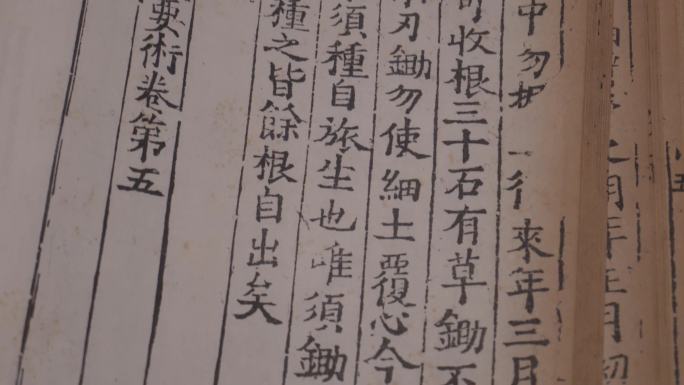 年正月
中勿 來年三月
收根三十石有草鋤不
刃鋤勿使細土覆心今
須種自旅生也唯須鋤
種之皆餘根自出矣
要術卷第五